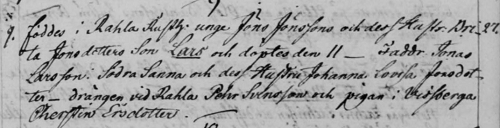 9. föddes i Rahla Rusth: unge Jöns Jönssons och dess Hustr. Bri- 27.
ta Jonsdotters Son Lars och döptes den 11 — Faddr. Jonas
Larsson i Södra Sanna och dess Hustru Johanna Lovisa Jonsdot-
ter — drängen vid Rahla Pehr Svensson och pigan i
Cherstin Ersdotter.